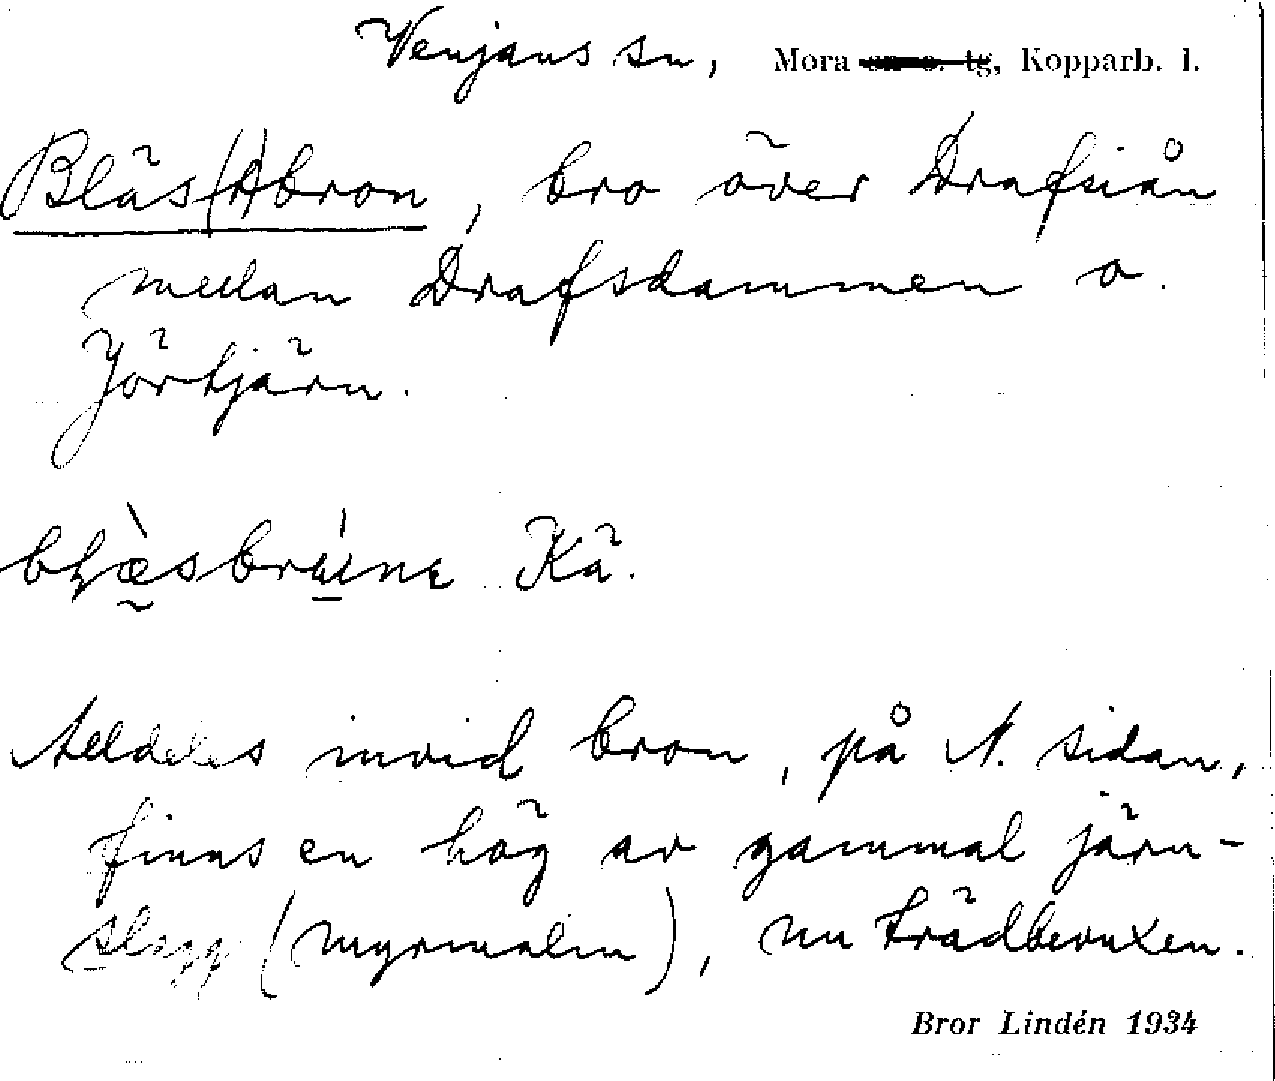 Venjans sn, Mora sn o. tg, Kopparb. l.
Bläs(t)bron, bro över Drafsiån
mellan Drafsdammen o.
Jörtjärn.
Kä.
Alldeles invid bron, på N. sidan,
finns en hög av gammal järn-
slagg (myrmalm), nu trädbevuxen.
Bror Lindén 1934